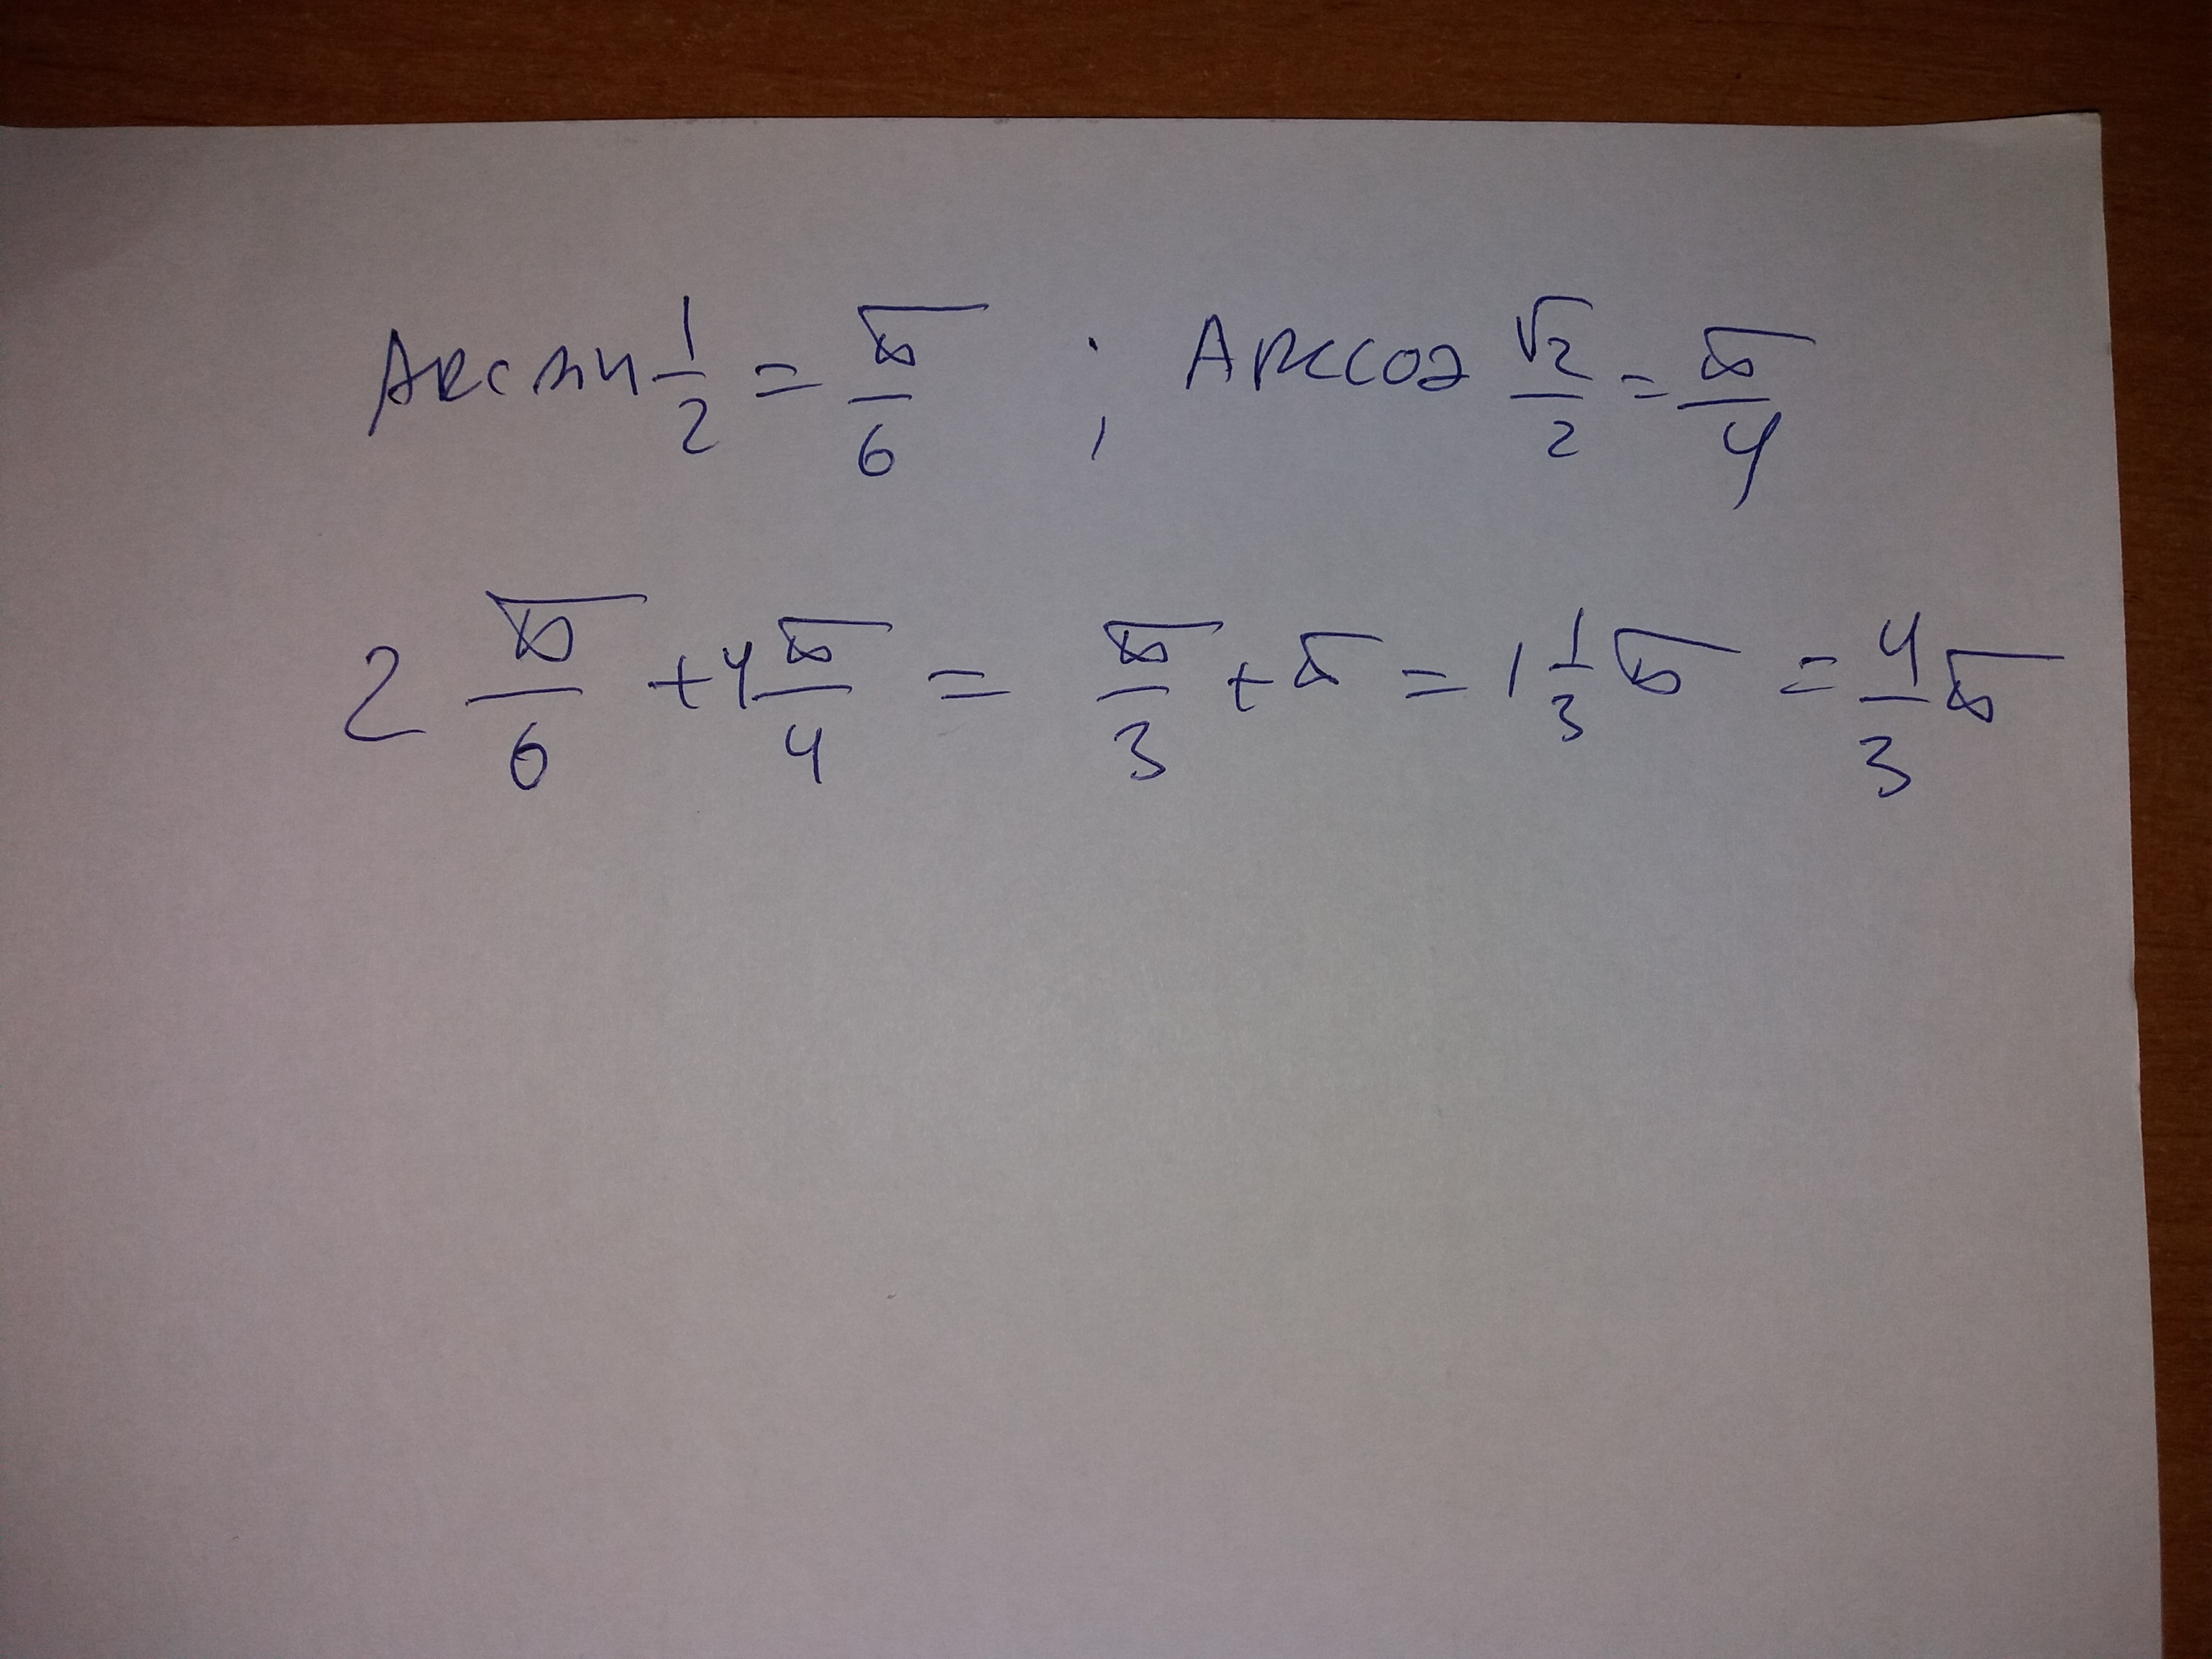 Arcsin 1/2 = π/6 ; Arccos √2/2 = π/4
2 π/6 + 4 π/4 = π/3 + π = 1 1/3 π = 4/3 π